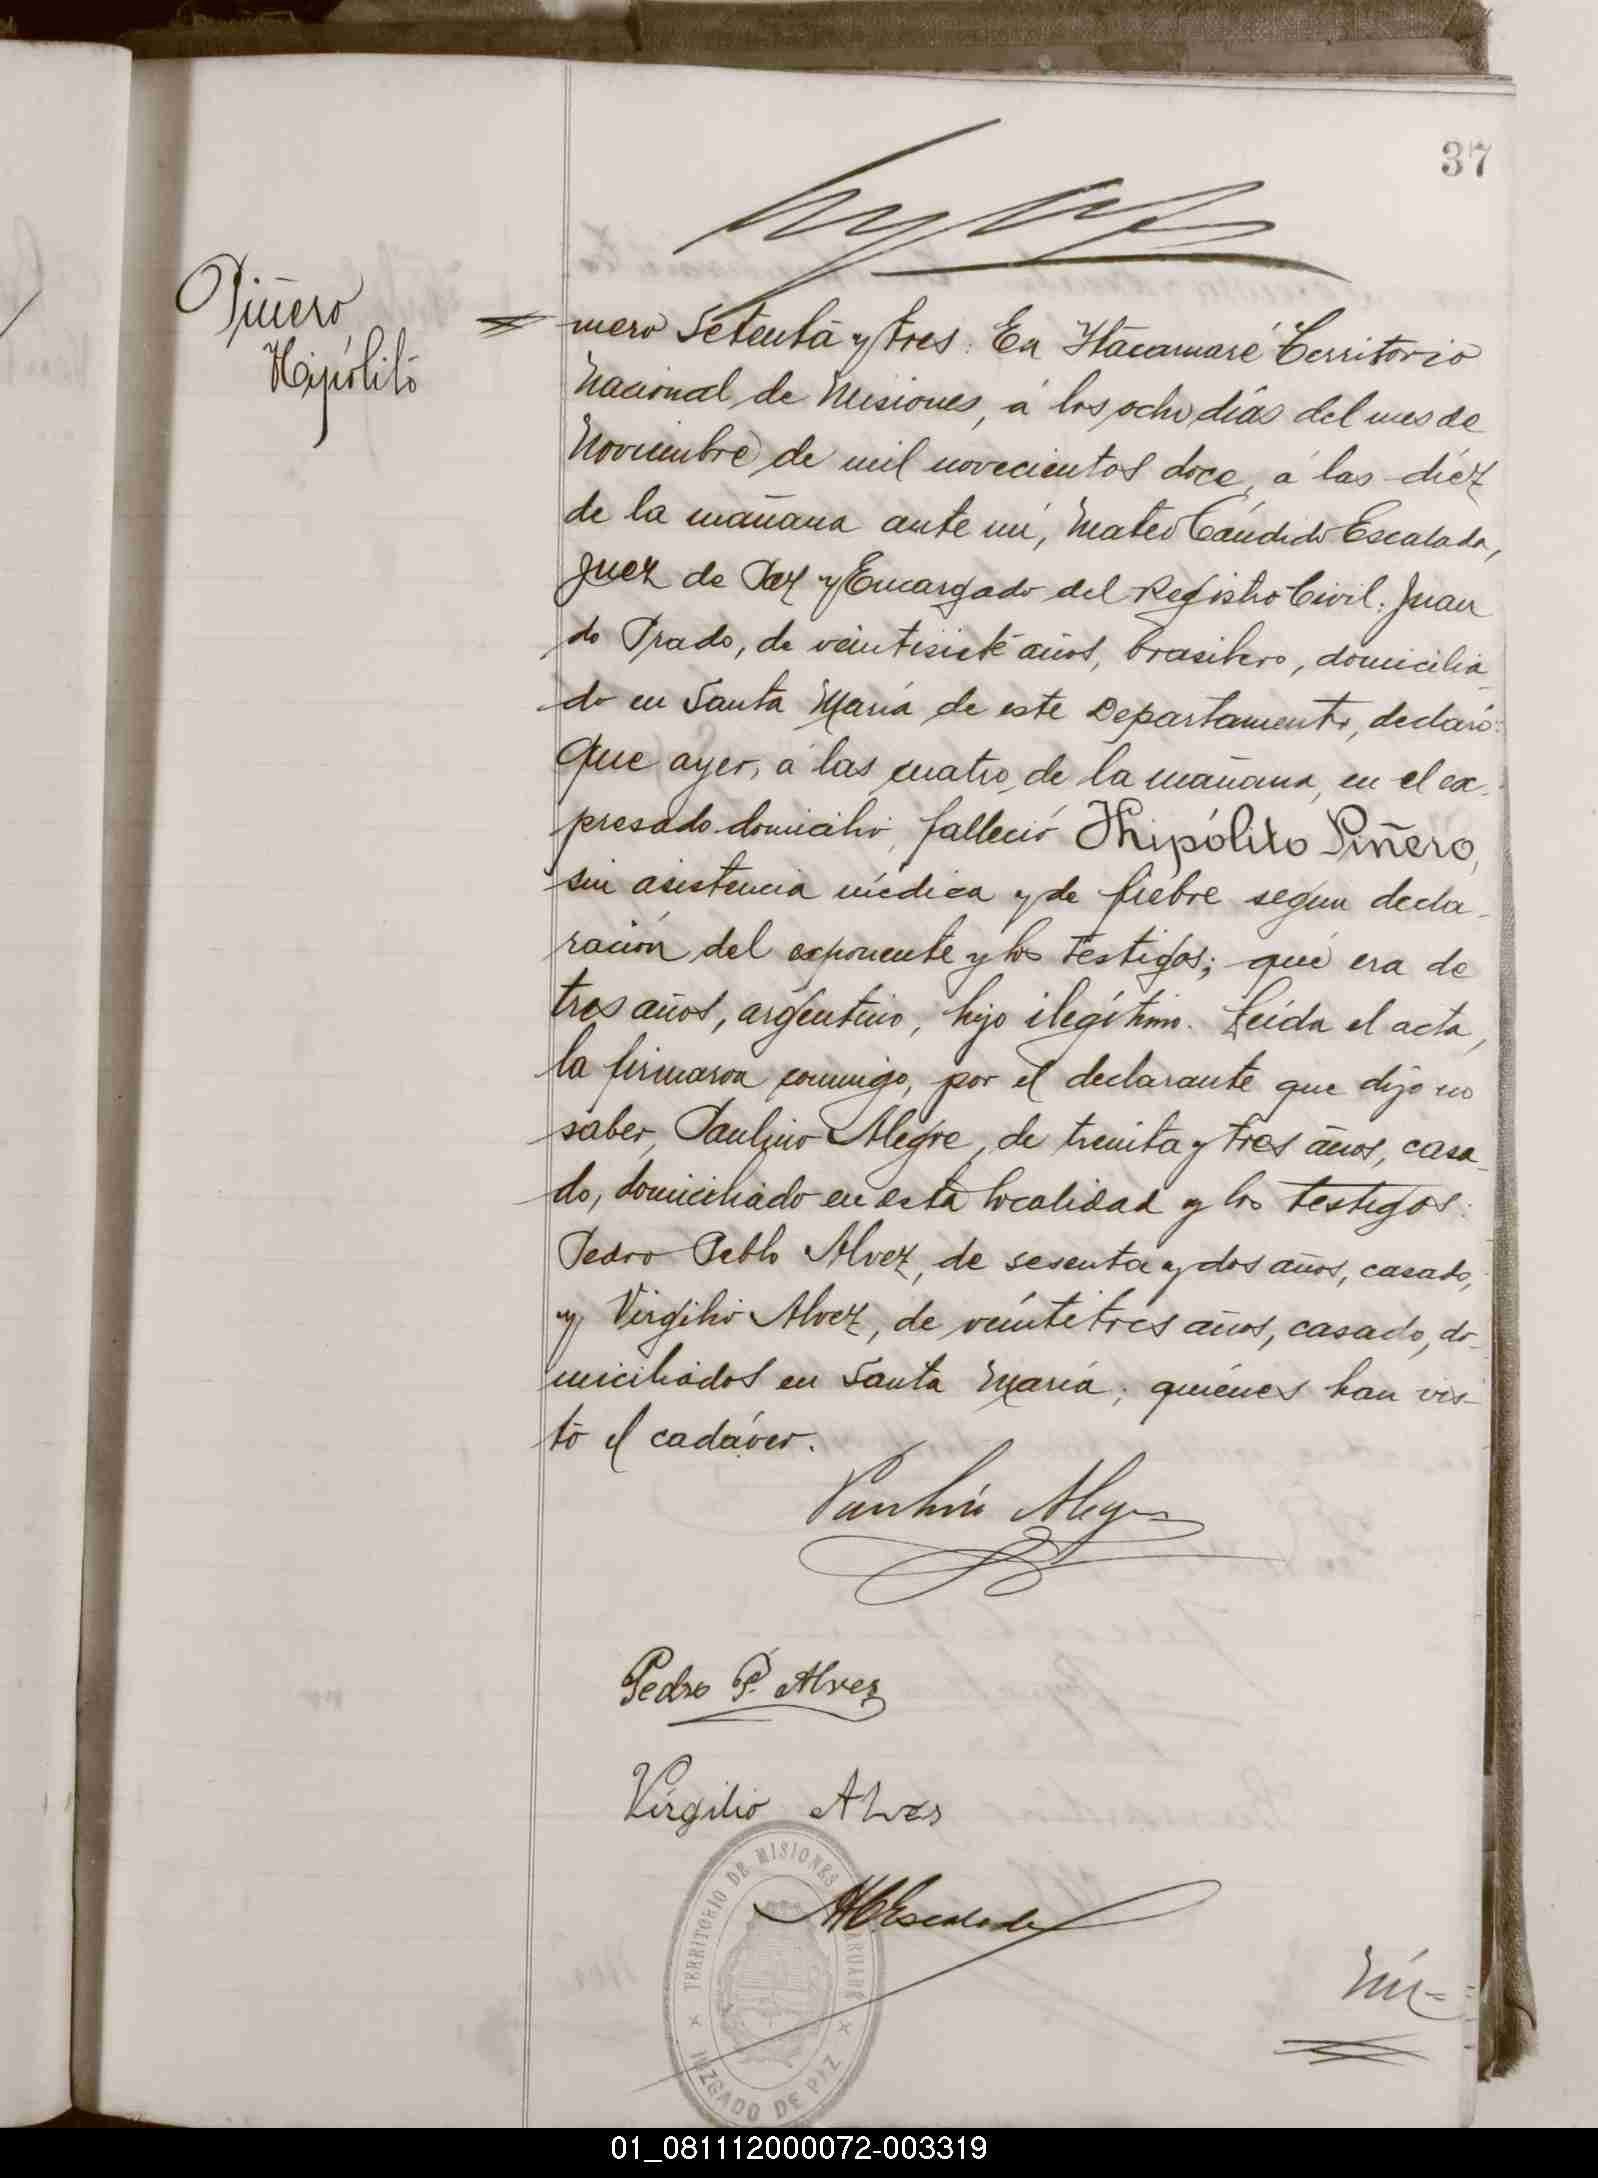 37
Piñero
Hipólito
mero Setenta y tres: En Itacaruaré Territorio
Nacional de Misiones, á los ocho días del mes de
Noviembre de mil novecientos doce, á las diéz
de la mañana ante mí, Mateo Cándido Escalada,
Juez de Paz y Encargado del Registro Civil: Juan
do Prado, de veintisiete años, brasilero, domicilia
do en Santa María de este Departamento, declaró:
Que ayer, á las cuatro de la mañana, en el ex-
presado domicilio, falleció Hipólito Piñero,
sin asistencia médica y de fiebre segun decla-
ración del exponente y los testigos; que era de
tres años, argentino, hijo ilegítimo. Leída el acta,
la firmaron conmigo, por el declarante que dijo no
saber, Paulino Alegre, de treinta y tres años, casa-
do, domiciliado en esta localidad y los testigos:
Pedro Pablo Alvez, de sesenta y dos años, casado,
y Virgilio Alvez, de veintitres años, casado, do-
miciliados en Santa María; quiénes han vis-
to el cadáver.
Paulino Alegre
Pedro P. Alvez
Virgilio Alves
MCEscalada
TERRITORIO DE MISIONES
JUZGADO DE PAZ
Nú=
01_081112000072-003319